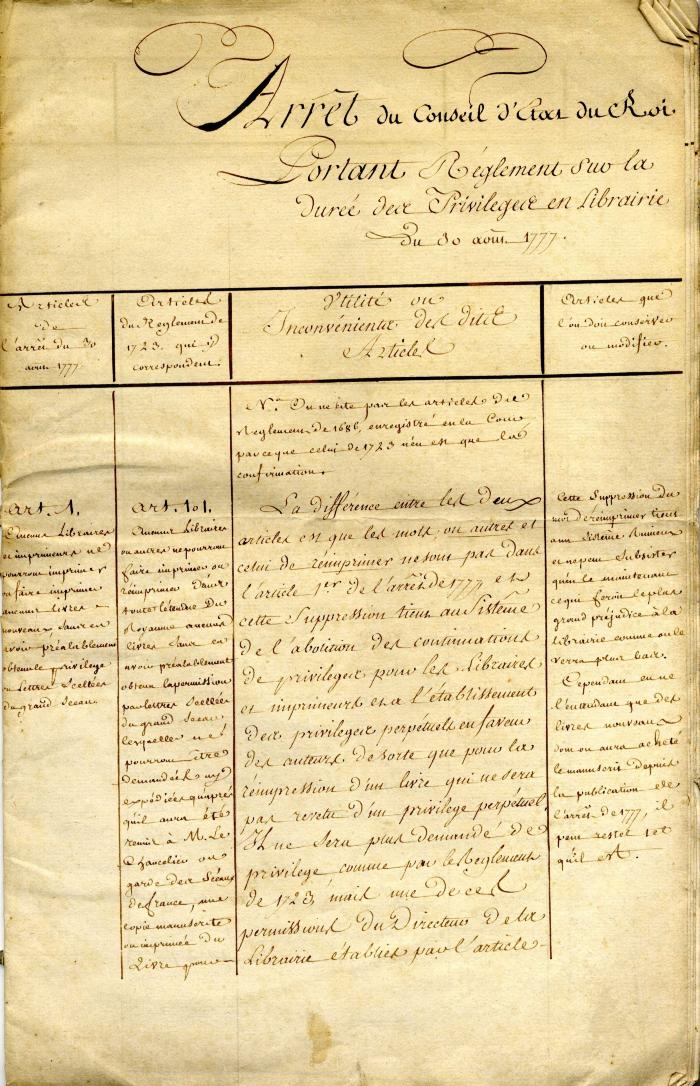 Arrêt du Conseil d'Etat du Roi
Portant Réglement sur la
durée des Privileges en Librairie
Du 30 aoust 1777.
Articles
de
l'arrêt du 30
aoust 1777
Articles
du Reglement de
1723. qui y
correspondent.
Utilité ou
Inconvénients des dits
Articles
Articles que
l'on doit conserver
ou modifier.
Na. On ne cite pas les articles du
Reglement de 1686, enregistré en la Cour
parceque celui de 1723 n'en est que la
confirmation.
Art. 1.
Aucuns Libraires
et imprimeurs ne
pourront imprimer
ou faire imprimer
aucuns livres
nouveaux sans en
avoir préalablement
obtenu le privilege
ou Lettres Scellées
du grand Sceau.
Art. 101.
Aucuns Libraires
ou autres ne pourront
faire imprimer ou
réimprimer dans
toute l'etendue du
Royaume aucuns
livres sans en
avoir préalablement
obtenu la permission
par lettres scellées
du grand Sceau
lesquelles ne
pourront être
demandées ny
expediées qu'après
qu'il aura été
remis à M. Le
Chancelier ou
garde des Sceaux
de france, une
copie manuscrite
ou imprimée du
Livre pour
La différence entre les deux
articles est que les mots, ou autres et
celui de réimprimer ne sont pas dans
l'article 1er de l'arrêt de 1777 et
cette Suppression tient au Sistême
de l'abolition des continuations
de privileges pour les Libraires
et imprimeurs et a l'établissement
des privileges perpétuels en faveur
des auteurs de sorte que pour la
réimpression d'un livre qui ne sera
pas revetu d'un privilege perpétuel,
Il ne sera plus demandé de
privilege comme par le Reglement
de 1723, mais une de ces
permissions du Directeur de la
Librairie établies par l'article
Cette Suppression du
mot de réimprimer tient
au Sistême Ruineux
et ne peut Subsister
qu'en le maintenant
ce qui feroit le plus
grand préjudice à la
librairie comme on le
verra plus bas.
Cependant en ne
l'entendant que des
livres nouveaux
dont on aura acheté
le manuscrit depuis
la publication de
l'arrêt de 1777, il
peut rester tel
qu'il est.